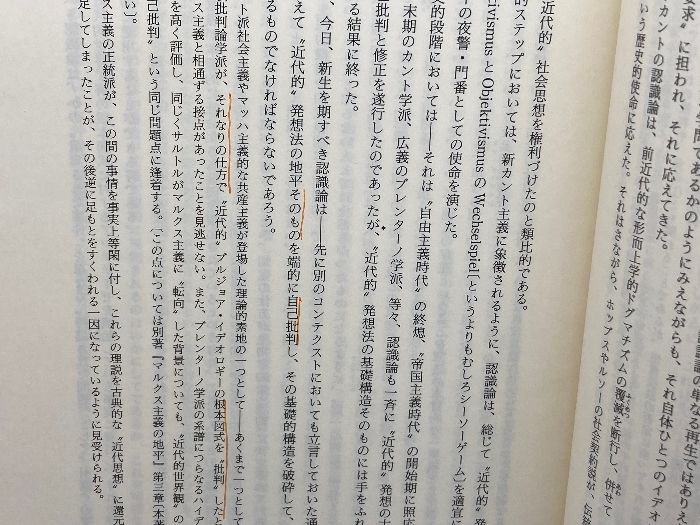 学問であるかのようにみえながらも、それ自体ひとつのイデオ
要求〟に担われ、それに応えてきた。
カントの認識論は、前近代的な形而上学的ドグマチズムの覆滅を断行し、併せて
いう歴史的使命に応えた。それはさながら、ホッブスやルソーの社会契約説が、伝統
近代的〟社会思想を権利づけたのと類比的である。
的ステップにおいては、新カント主義に象徴されるように、認識論は、総じて〝近代的〟発
ctivismus と Objektivismus の Wechselspiel［というよりもむしろシーソーゲーム］を適宜に
の夜警・門番としての使命を演じた。
史的段階においては――それは〝自由主義時代〟の終熄、〝帝国主義時代〟の開始期に照応
末期のカント学派、広義のブレンターノ学派、等々、認識論も一斉に〝近代的〟発想の
批判と修正を遂行したのであったが、〝近代的〟発想法の基礎構造そのものには手をふれ
る結果に終った。
、今日、新生を期すべき認識論は――先に別のコンテクストにおいても立言しておいた通
えて〝近代的〟発想法の地平そのものを端的に自己批判し、その基礎的構造を破砕して、
るものでなければならないであろう。
ト派社会主義やマッハ主義的な共産主義が登場した理論的素地の一つとして――あくまで一つとして
批判論学派が、それなりの仕方で〝近代的〟ブルジョア・イデオロギーの根本図式を〝批判〟したと
ス主義と相通ずる接点があったことを見逃せない。また、ブレンターノ学派の系譜につらなるハイデ
を高く評価し、同じくサルトルがマルクス主義に〝転向〟した背景についても、〝近代的世界観〟の
己批判〟という同じ問題点に逢着する。［この点については別著『マルクス主義の地平』第三章［本著
い］。
ス主義の正統派が、この間の事情を事実上等閑に付し、これらの理説を古典的な〝近代思想〟に還元
足してしまったことが、その後逆に足もとをすくわれる一因になっているように見受けられる。